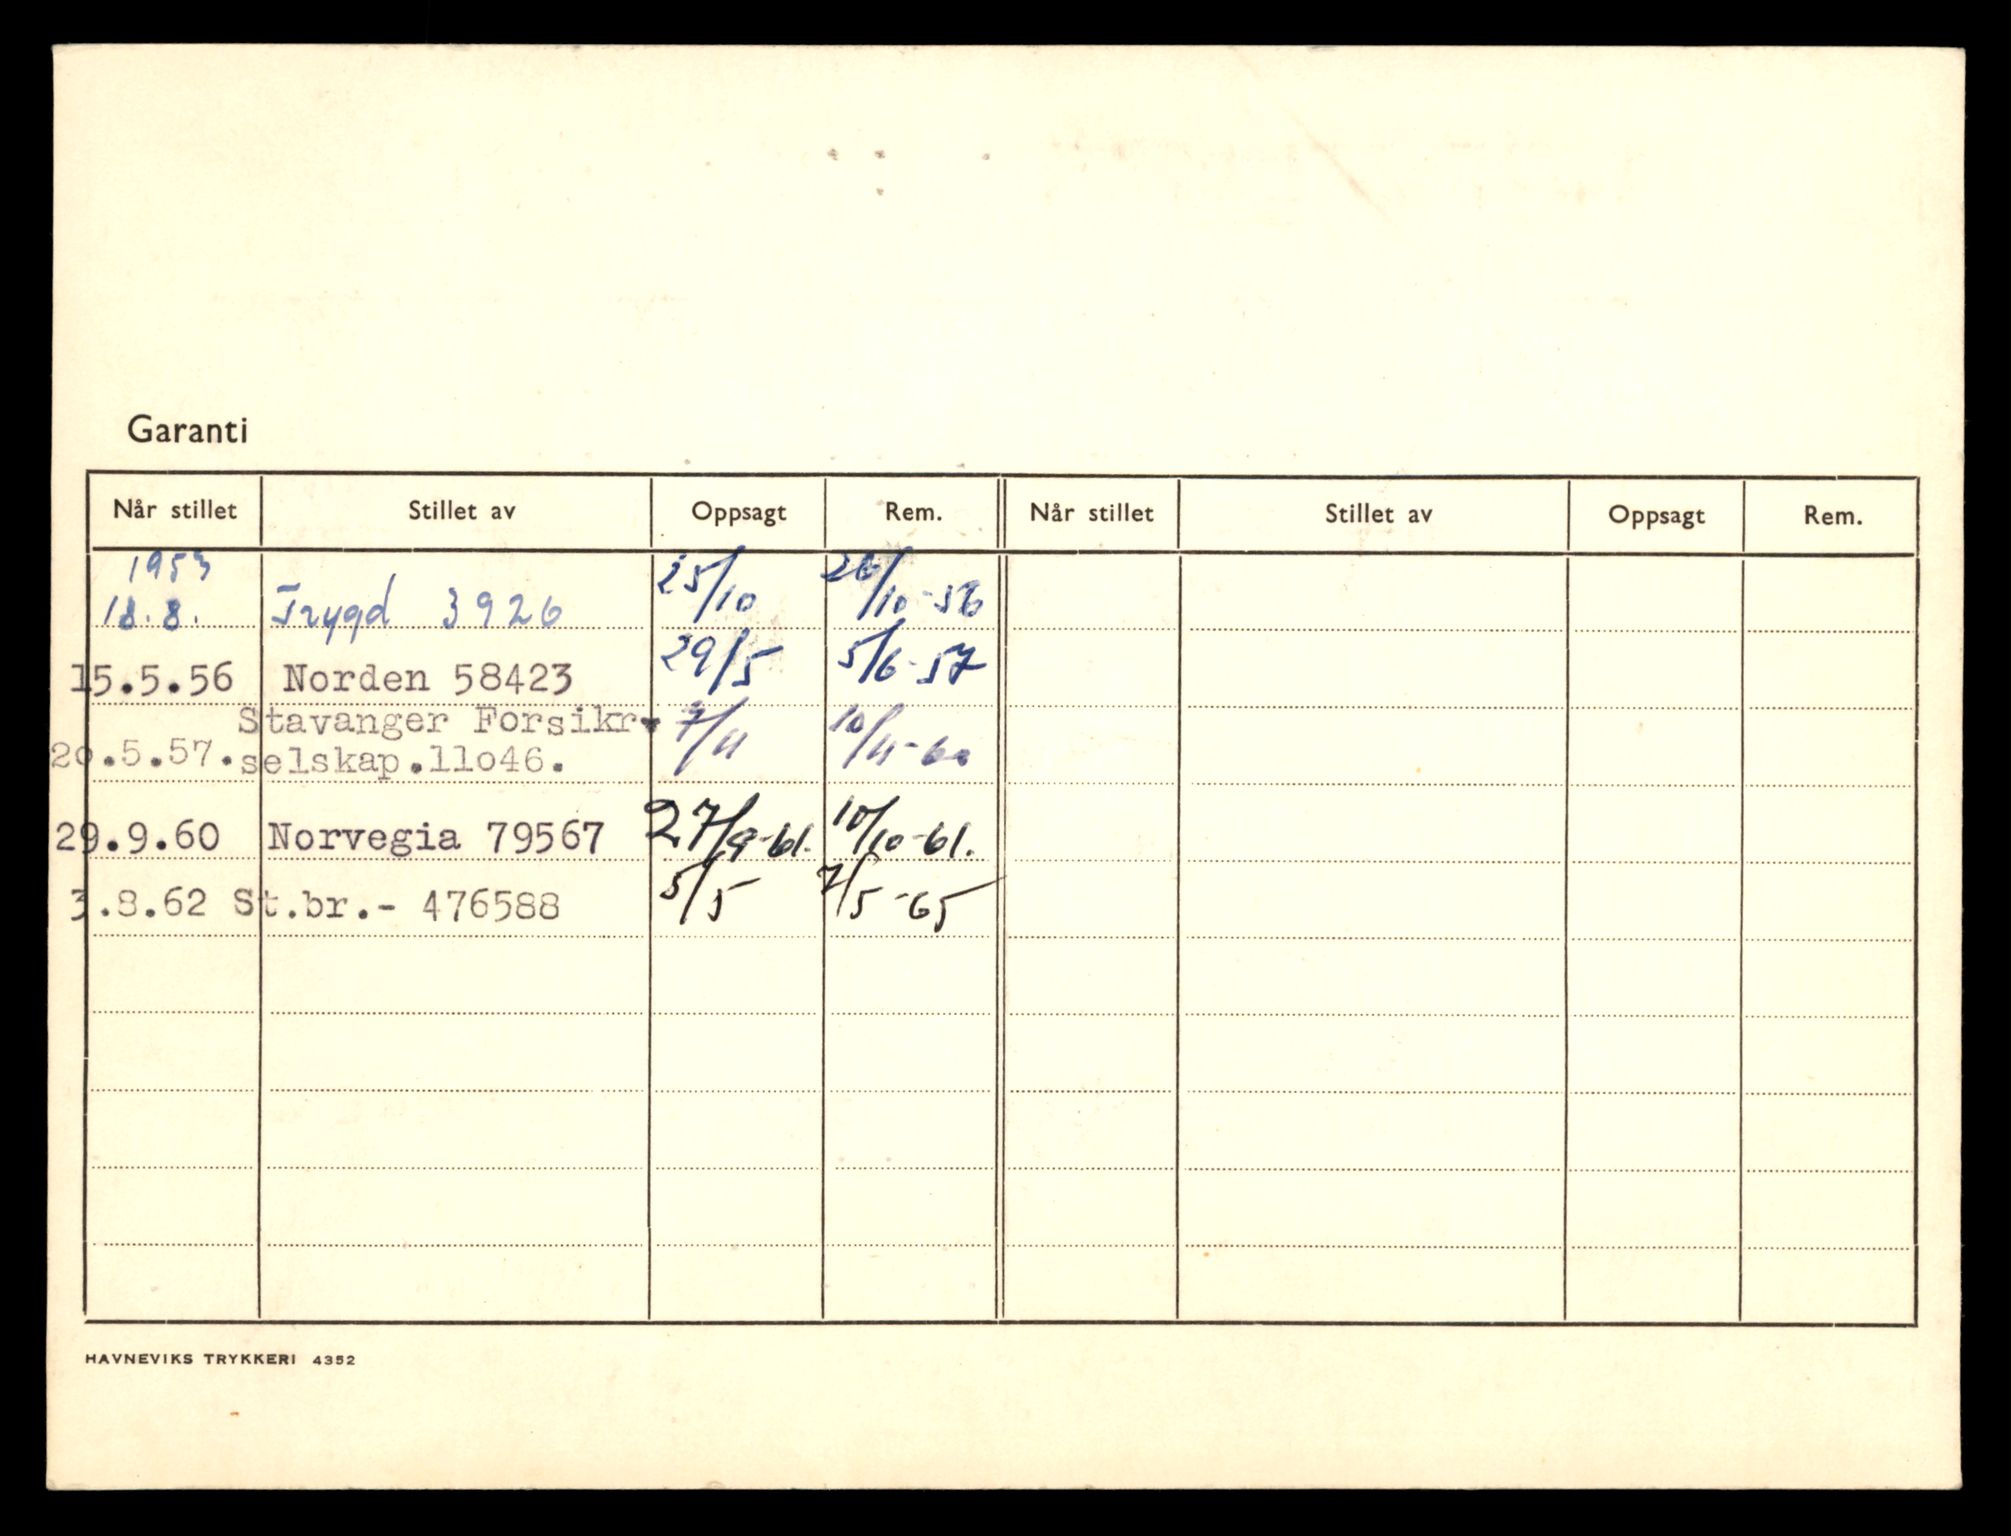 Garanti
Når stillet Stillet av Oppsagt Rem. Når stillet Stillet av Oppsagt Rem.
1953
18.8. Trygd 3926 25/10 26/10-56
15.5.56 Norden 58423 29/5 5/6-57
Stavanger Forsikr. 7/11 10/11-60
20.5.57. selskap.11o46.
29.9.60 Norvegia 79567 27/9-61. 10/10-61.
3.8.62 St.br.- 476588 5/5 7/5-65
HAVNEVIKS TRYKKERI 4352